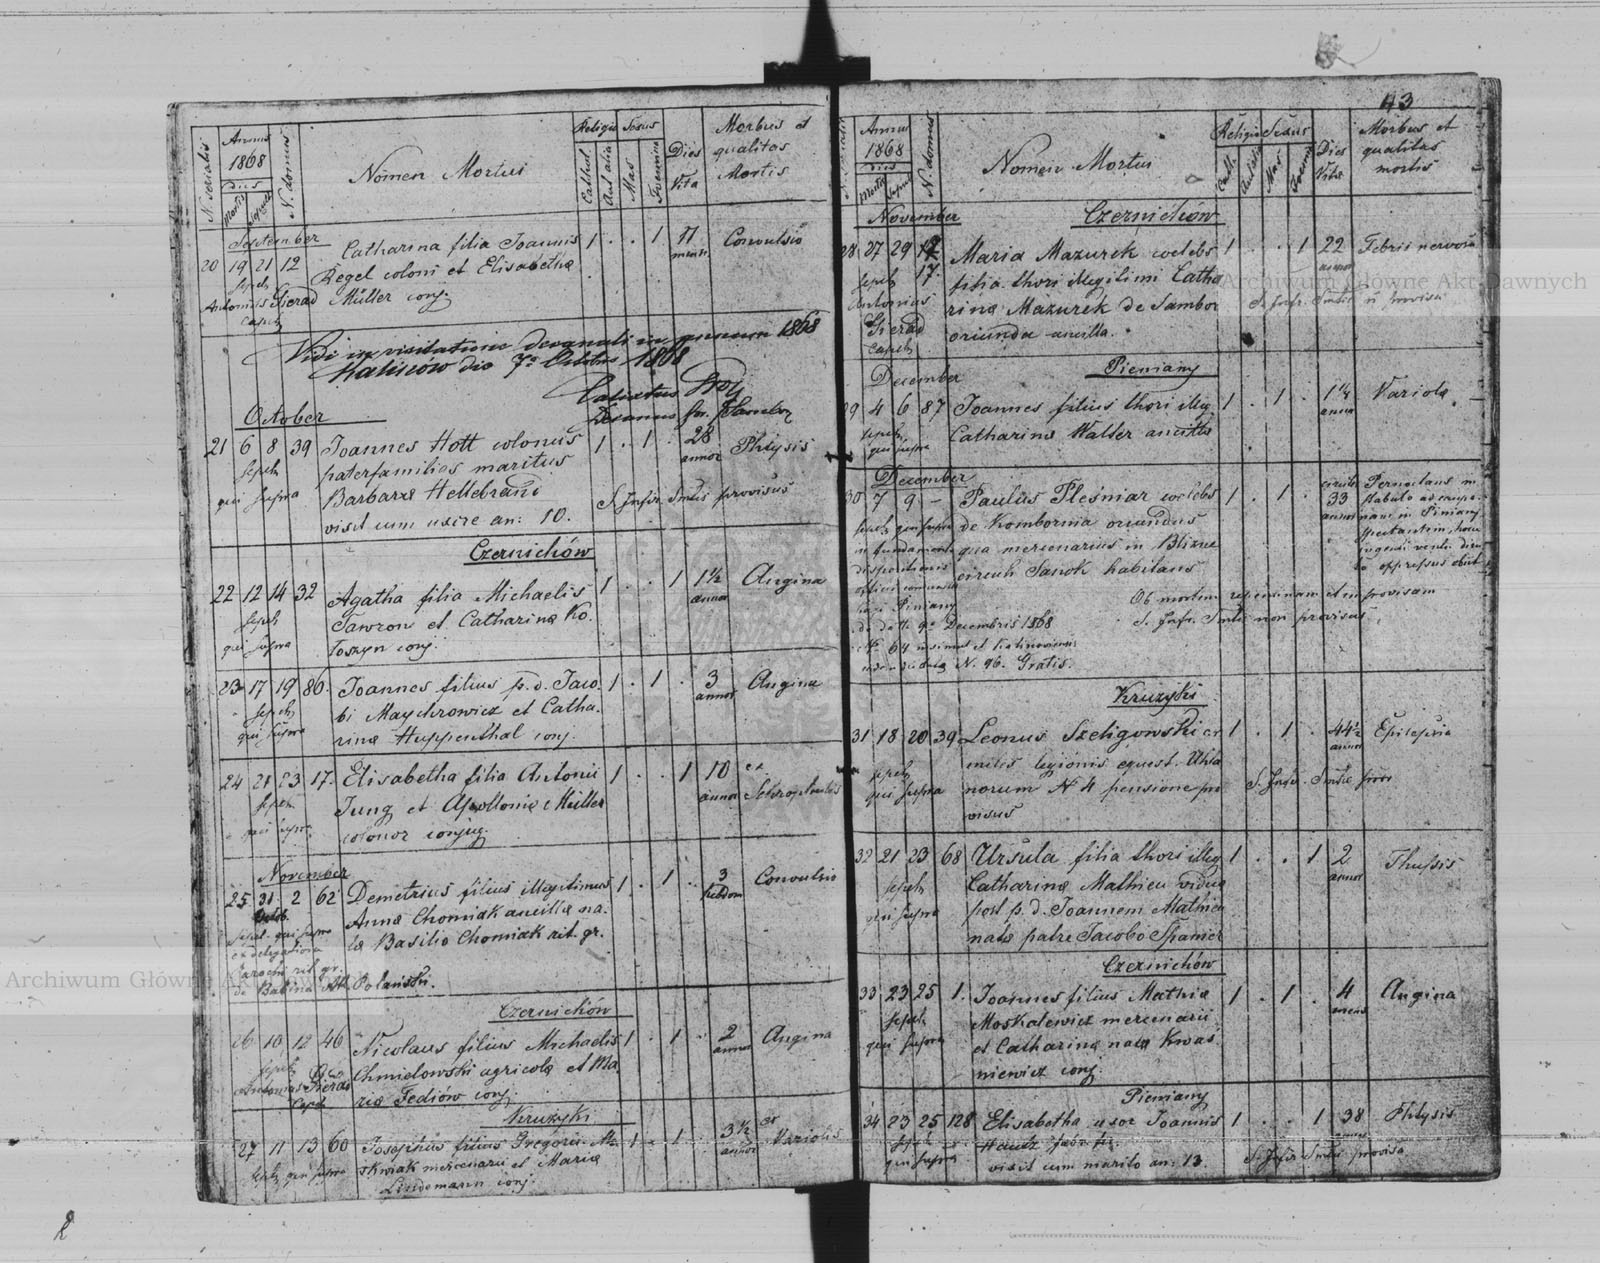 N. Serialis
Annus
1868
Dies
Mortis
Sepult
N. domus
Nomen Mortui
Religio
Cathol
Aut alia
Sexus
Mas
Foemina
Dies
Vita
Morbus et
qualitas
Mortis
September
20 19 21 12 Catharina filia Joannis 1 . . 1 11 Convulsio
Regel coloni et Elisabetha mens.
sepel.
Antonius Sierad Müller conj.
Capel.
Vidi in visitatione decanali in annum 1868
Kalinów die 7a Octobris 1868
Calixtus
Decanus
October
21 6 8 39 Joannes Hott colonus 1 . 1 . 28 Phtysis
sepel. paterfamilias maritus annor
qui supra Barbara Hellebrand S. Infir. Smtis provisus
vixit cum uxore an: 10.
Czernichów
22 12 14 32 Agatha filia Michaelis 1 . . 1 1½ Angina
sepel. Jawron et Catharina Ko- anno
qui supra
toszyn conj.
23 17 19 80. Joannes filius p. d. Jaco- 1 . 1 . 3 Angina
sepel. bi Maychrowicz et Catha- annor
qui supra rina Huppenthal conj.
24 21 23 17. Elisabetha filia Antonii 1 . . 1 10 ex
sepel. Jung et Apollonia Müller annor
qui supra colonor conjug.
November
25 31 2 62 Demetrius filius illegitimus 1 . 1 . 3 Convulsio
Octob. Anna Chomiak ancilla na- hebdom
sepel. qui supra ta Basilio Chomiak rit. gr.
ex delegatione
Parochi rit. gr.
de Babina Polański.
Czernichów
26 10 12 46 Nicolaus filius Michaelis 1 . 1 . 2 Angina
sepel. Chmielowski agricola et Ma- annor
Antonius Sierad
Capel. ria Fediów conj.
Kruzyki
27 11 13 60 Josephus filius Gregorii 1 . 1 . 3½ ex
sepel. qui supra mercenarii et Maria annor Variolis
Lindemann conj.
43
N. Serialis
Annus
1868
dies
Mortis
Sepul
N. domus
Nomen Mortui
Religio
Cath.
Aut alia
Sexus
Mas
Foemina
Dies
Vita
Morbus et
qualitas
mortis
November
Czernichów
28 27 29 12 Maria Mazurek coelebs 1 . . 1 22 Febris nervosa
sepel. 17. filia thori illegitimi Catha- annor
Antonius rina Mazurek de Sambor S. Infir. Smtis provisa
Sierad oriunda ancilla.
Capel.
December
Pieniany
29 4 6 87 Joannes filius thori illeg 1 . 1 . 1¼ Variola
sepel. Catharina Walter ancilla anno
qui supra
December
30 7 9 - Paulus Pleśniar coelebs 1 . 1 . circit Pernoctans in
sepel. qui supra de Kombornia oriundus 33 stabulo ad caupo-
in fundamento qua mercenarius in Blizne annor nam in Piniany
dispositionis circuli Sanok habitans spectantem, hora
officii communi
oppressus obiit
Ob mortem repentinam et improvisam
S. Infr. Smtis non provisus.
Piniany
9a Decembris 1868
N. 96. Gratis.
Kruzyki
31 18 20 39 Leonus Szeligowski 1 . 1 . 44½ Epilepsia
sepel. miles legionis equest. Uhla- annor
qui supra norum N 4 pensione pro- S. Infir. Smtis
visus
32 21 23 68 Ursula filia thori illeg 1 . . 1 2 Thussis
sepel. Catharina Mathieu vidua annor
qui supra post p. d. Joannem Mathieu
nata patre Jacobo Spanier
Czernichów
33 23 25 1. Joannes filius Mathia 1 . 1 . 4 Angina
sepel. Moskalewicz mercenarii mens
qui supra et Catharina nata Kwas-
niewicz conj.
Pieniany
34 23 25 128 Elisabetha uxor Joannis 1 . . 1 38 Phtysis
sepel. annor
qui supra vixit cum marito an: 13. S. Infir. Smtis provisa
Archiwum Główne Akt Dawnych
Archiwum Główne Akt Dawnych